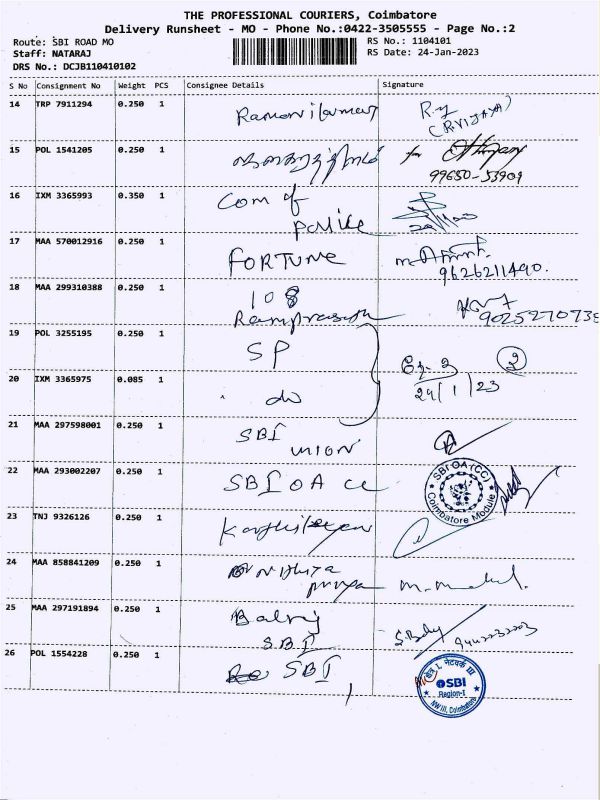 THE PROFESSIONAL COURIERS, Coimbatore
Delivery Runsheet - MO - Phone No.:0422-3505555 - Page No.:2
Route: SBI ROAD MO
RS No.: 1104101
Staff: NATARAJ
RS Date: 24-Jan-2023
DRS No.: DCJB110410102
S No Consignment No Weight PCS Consignee Details Signature
14 TRP 7911294 0.250 1
(R.VIJAYA)
15 POL 1541205 0.250 1 for
99650-53909
16 IXM 3365993 0.350 1 Com of
Police
17 MAA 570012916 0.250 1 FORTUNE
9626211490.
18 MAA 299310388 0.250 1 108
Ramprasath 9025270738
19 POL 3255195 0.250 1 SP
2
20 IXM 3365975 0.085 1 do 24/1/23
21 MAA 297598001 0.250 1 SBI
UNION
22 MAA 293002207 0.250 1 SBI OA CC
SBI OA (CC)
Coimbatore Module
23 TNJ 9326126 0.250 1
24 MAA 858841209 0.250 1 Nithya
priya
25 MAA 297191894 0.250 1 Balraj
SBI
26 POL 1554228 0.250 1 SBI
SBI
Region-I
NW III, Coimbatore